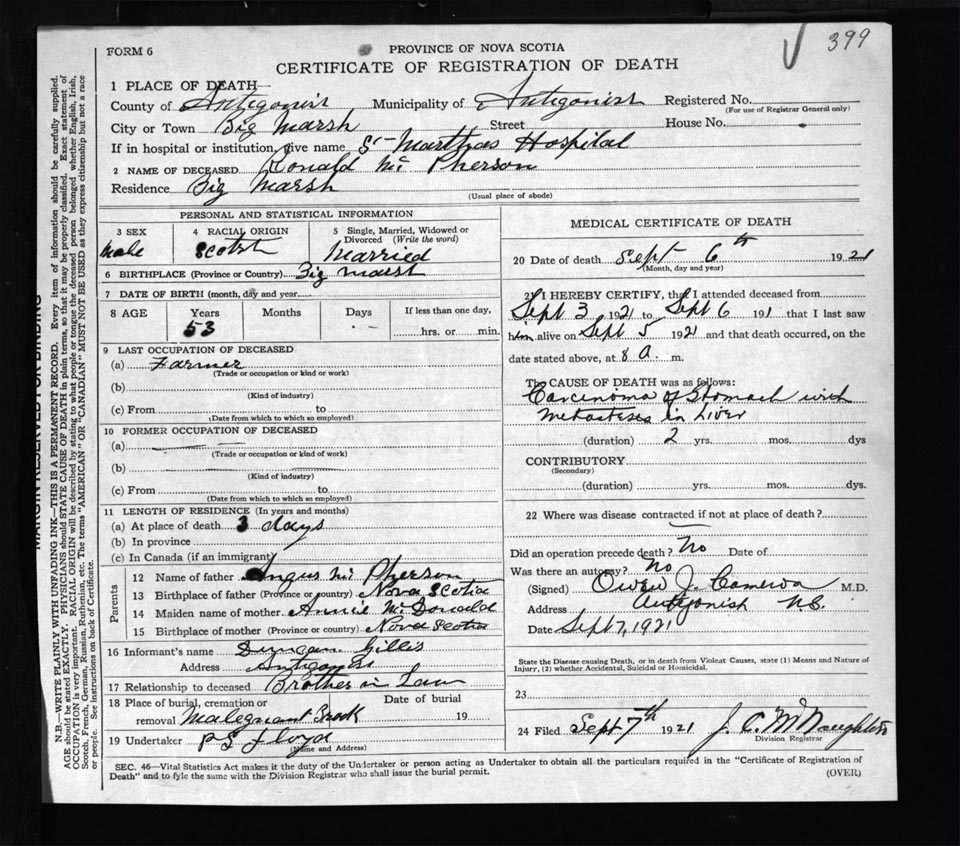 399
FORM 6
PROVINCE OF NOVA SCOTIA
CERTIFICATE OF REGISTRATION OF DEATH
1 PLACE OF DEATH
County of Antigonish Municipality of Antigonish Registered No.
(For use of Registrar General only)
City or Town Big Marsh Street House No.
If in hospital or institution, give name St Marthas Hospital
2 NAME OF DECEASED Ronald Mc Pherson
Residence Big Marsh
(Usual place of abode)
PERSONAL AND STATISTICAL INFORMATION
3 SEX 4 RACIAL ORIGIN 5 Single, Married, Widowed or
Divorced (Write the word)
Male Scotch Married
6 BIRTHPLACE (Province or Country) Big Marsh
7 DATE OF BIRTH (month, day and year
8 AGE Years Months Days If less than one day,
53 hrs. or min.
9 LAST OCCUPATION OF DECEASED
(a) Farmer
(Trade or occupation or kind or work)
(b)
(Kind of industry)
(c) From to
(Date from which to which so employed)
10 FORMER OCCUPATION OF DECEASED
(a)
(Trade or occupation or kind of work)
(b)
(Kind of industry)
(c) From to
(Date from which to which so employed)
11 LENGTH OF RESIDENCE (In years and months)
(a) At place of death 3 days
(b) In province
(c) In Canada (if an immigrant)
Parents
12 Name of father Angus Mc Pherson
13 Birthplace of father (Province or country) Nova Scotia
14 Maiden name of mother Annie McDonald
15 Birthplace of mother (Province or country) Nova Scotia
16 Informant's name Duncan Gillis
Address Antigonish
17 Relationship to deceased Brother in Law
18 Place of burial, cremation or Date of burial
removal Malignant Brook 19
19 Undertaker P S Floyd
(Name and Address)
MEDICAL CERTIFICATE OF DEATH
20 Date of death Sept 6th 1921
(Month, day and year)
21 I HEREBY CERTIFY, that I attended deceased from
Sept 3 1921 to Sept 6 191 that I last saw
him alive on Sept 5 1921 and that death occurred, on the
date stated above, at 8 a. m.
The CAUSE OF DEATH was as follows:
Carcinoma of Stomach with
Metastases in Liver
(duration) 2 yrs. mos. dys
CONTRIBUTORY
(Secondary)
(duration) yrs. mos. dys.
22 Where was disease contracted if not at place of death?
Did an operation precede death? No Date of
Was there an autopsy? No
(Signed) Owen J. Cameron M.D.
Address Antigonish N.S.
Date Sept 7, 1921
State the Disease causing Death, or in death from Violent Causes, state (1) Means and Nature of
Injury, (2) whether Accidental, Suicidal or Homicidal.
23
24 Filed Sept. 7th 1921 J. C. McNaughton
Division Registrar
SEC. 46—Vital Statistics Act makes it the duty of the Undertaker or person acting as Undertaker to obtain all the particulars required in the "Certificate of Registration of
Death" and to fyle the same with the Division Registrar who shall issue the burial permit.
(OVER)
MARGIN RESERVED FOR BINDING
N.B.—WRITE PLAINLY WITH UNFADING INK—THIS IS A PERMANENT RECORD. Every item of information should be carefully supplied.
AGE should be stated EXACTLY. PHYSICIANS should STATE CAUSE OF DEATH in plain terms, so that it may be properly classified. Exact statement of
OCCUPATION is very important. RACIAL ORIGIN will be described by stating to what people or tongue the deceased person belonged whether English, Irish,
Scotch, French, German, Russian, Ruthenian, etc. The terms "AMERICAN" OR "CANADIAN" MUST NOT BE USED as they express citizenship but not a race
or people. See instructions on back of Certificate.